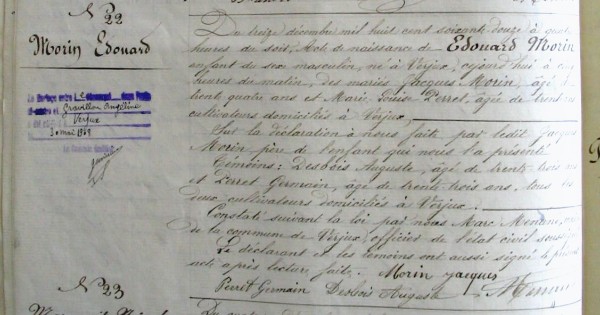 N° 22
Morin Edouard
Du treize décembre mil huit cent soixante douze à quat
heures du soir, Acte de naissance de Edouard Morin
enfant du sexe masculin, né à Verjux, aujourd'hui à
heures du matin, des mariés Jacques Morin, âgé
trente quatre ans et Marie Louise Perret, âgée de trente
cultivateurs domiciliés à Verjux.
Sur la déclaration à nous faite par ledit Jacques
Morin, père de l'enfant qui nous l'a présenté
Témoins: Desbois Auguste, âgé de trente trois ans
et Perret Germain, âgé de trente trois ans, tous les
deux cultivateurs domiciliés à Verjux.
Constaté suivant la loi, par nous Marc
de la commune de Verjux, officier de l'état civil sous
Le déclarant et les témoins ont aussi signé le présent
acte après lecture faite. Morin Jacques
Perret Germain Desbois Auguste
Gravillon Angéline
Verjux
N° 23